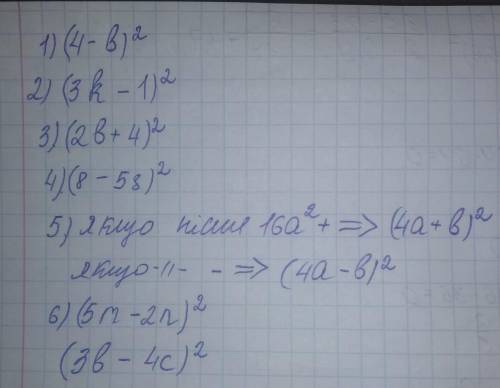 1) (4 - в)²
2) (3k - 1)²
3) (2в + 4)²
4) (8 - 5s)²
5) якщо після 16a² + => (4a + в)²
якщо -||- - => (4a - в)²
6) (5m - 2n)²
(3в - 4c)²